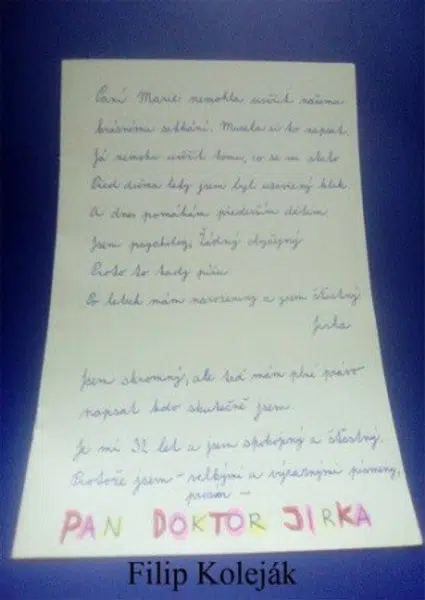 Paní Marie nemohla uvěřit našemu
krásnému setkání. Musela si to napsat.
Já nemohu uvěřit tomu, co se mi stalo
Před dvěma lety jsem byl uzavřený kluk.
A dnes pomáhám především dětem
Jsem psycholog. Žádný obyčejný
Proto to tady píšu
Po letech mám narozeniny a jsem šťastný
Jirka
Jsem skromný, ale teď mám plné právo
napsat kdo skutečně jsem.
Je mi 32 let a jsem spokojený a šťastný.
Protože jsem - velkými a výraznými písmeny,
prosím -
PAN DOKTOR JIRKA
Filip Koleják